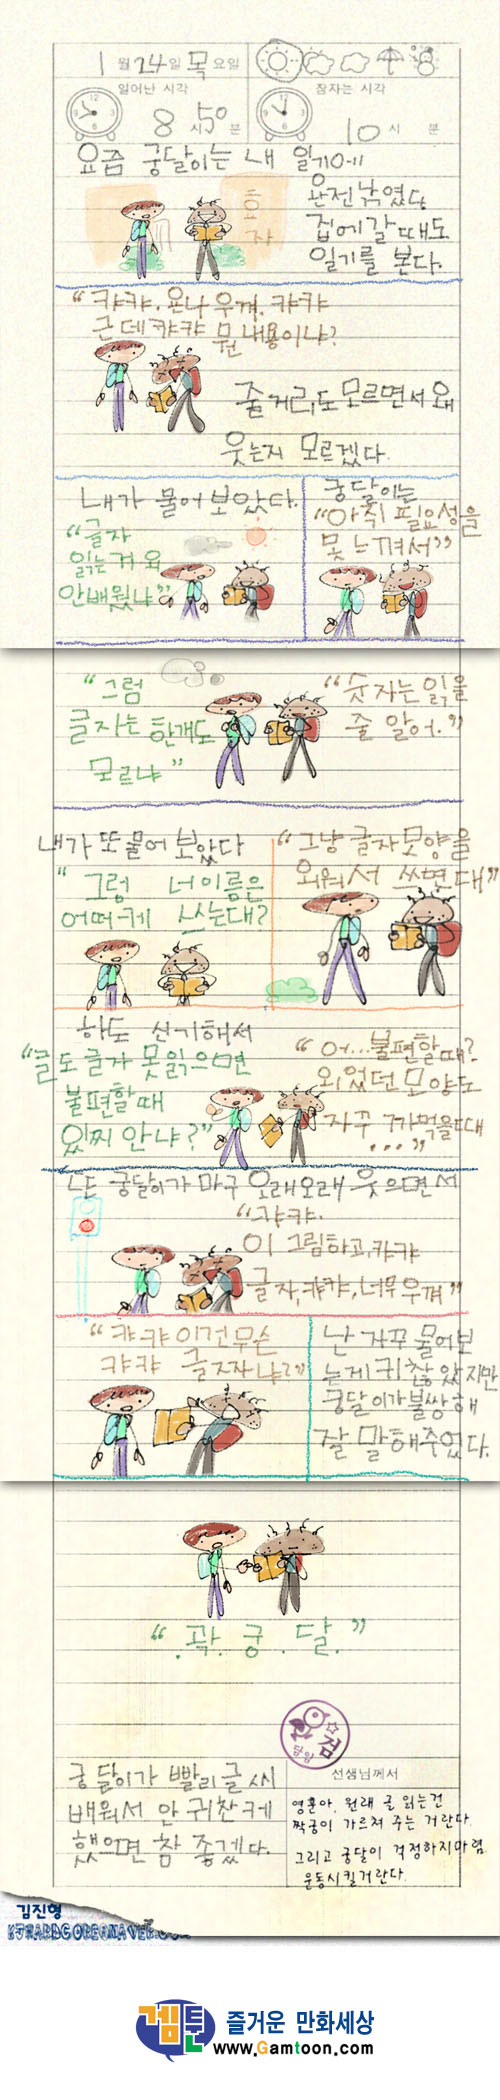 1월 24일 목요일
일어난 시각
잠자는 시각
8시 50분
10시 분
요즘 궁달이는 내 일기에
완전 낚였다
집에 갈 때도
일기를 본다.
"캬캬. 요나 우껴. 캬캬
근데 캬캬 뭔 내용이냐?
줄거리도 모르면서 왜
웃는지 모르겠다.
내가 물어 보았다.
"글자
읽는거 왜
안배웠냐"
궁달이는
"아직 필요성을
못 느껴서"
"그럼
글자는 한개도
모르냐"
"숫자는 읽을
줄 알어."
내가 또 물어 보았다
"그럼 너 이름은
어떠케 쓰는대?
"그냥 글자 모양을
외워서 쓰면 대"
하도 신기해서
"글도 글자 못 읽으면
불편할 때
있찌 안냐?"
"어...불편할 때?
외웠던 모양도
자꾸 까먹을때
...."
난 궁달이가 마구 오래오래 웃으면서
"캬캬.
이 그림하고, 캬캬
글자, 캬캬, 너무 우껴"
"캬캬 이건 무슨
캬캬 글짜냐?"
난 자꾸 물어보
는게 귀찮았지만
궁달이가 불쌍해
잘 말해주었다.
".곽.궁.달."
검
담임
궁달이가 빨리 글씨
배워서 안 귀찬케
했으면 참 좋겠다.
선생님께서
영훈아. 원래 글 읽는건
짝궁이 가르쳐 주는 거란다.
그리고 궁달이 걱정하지마렴.
운동시킬거란다.
김진형
겜툰 즐거운 만화세상
www.Gamtoon.com